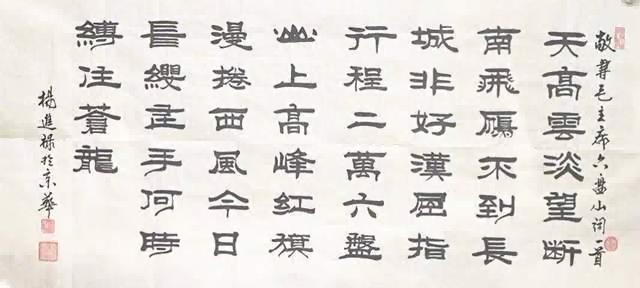 敬書毛主席六盤山詞一首
天髙雲淡望斷
南飛鴈不到長
城非好漢屈指
行程二萬六盤
山上髙峰紅旗
漫捲西風今日
長纓在手何時
縛住蒼龍
楊進祿於京華